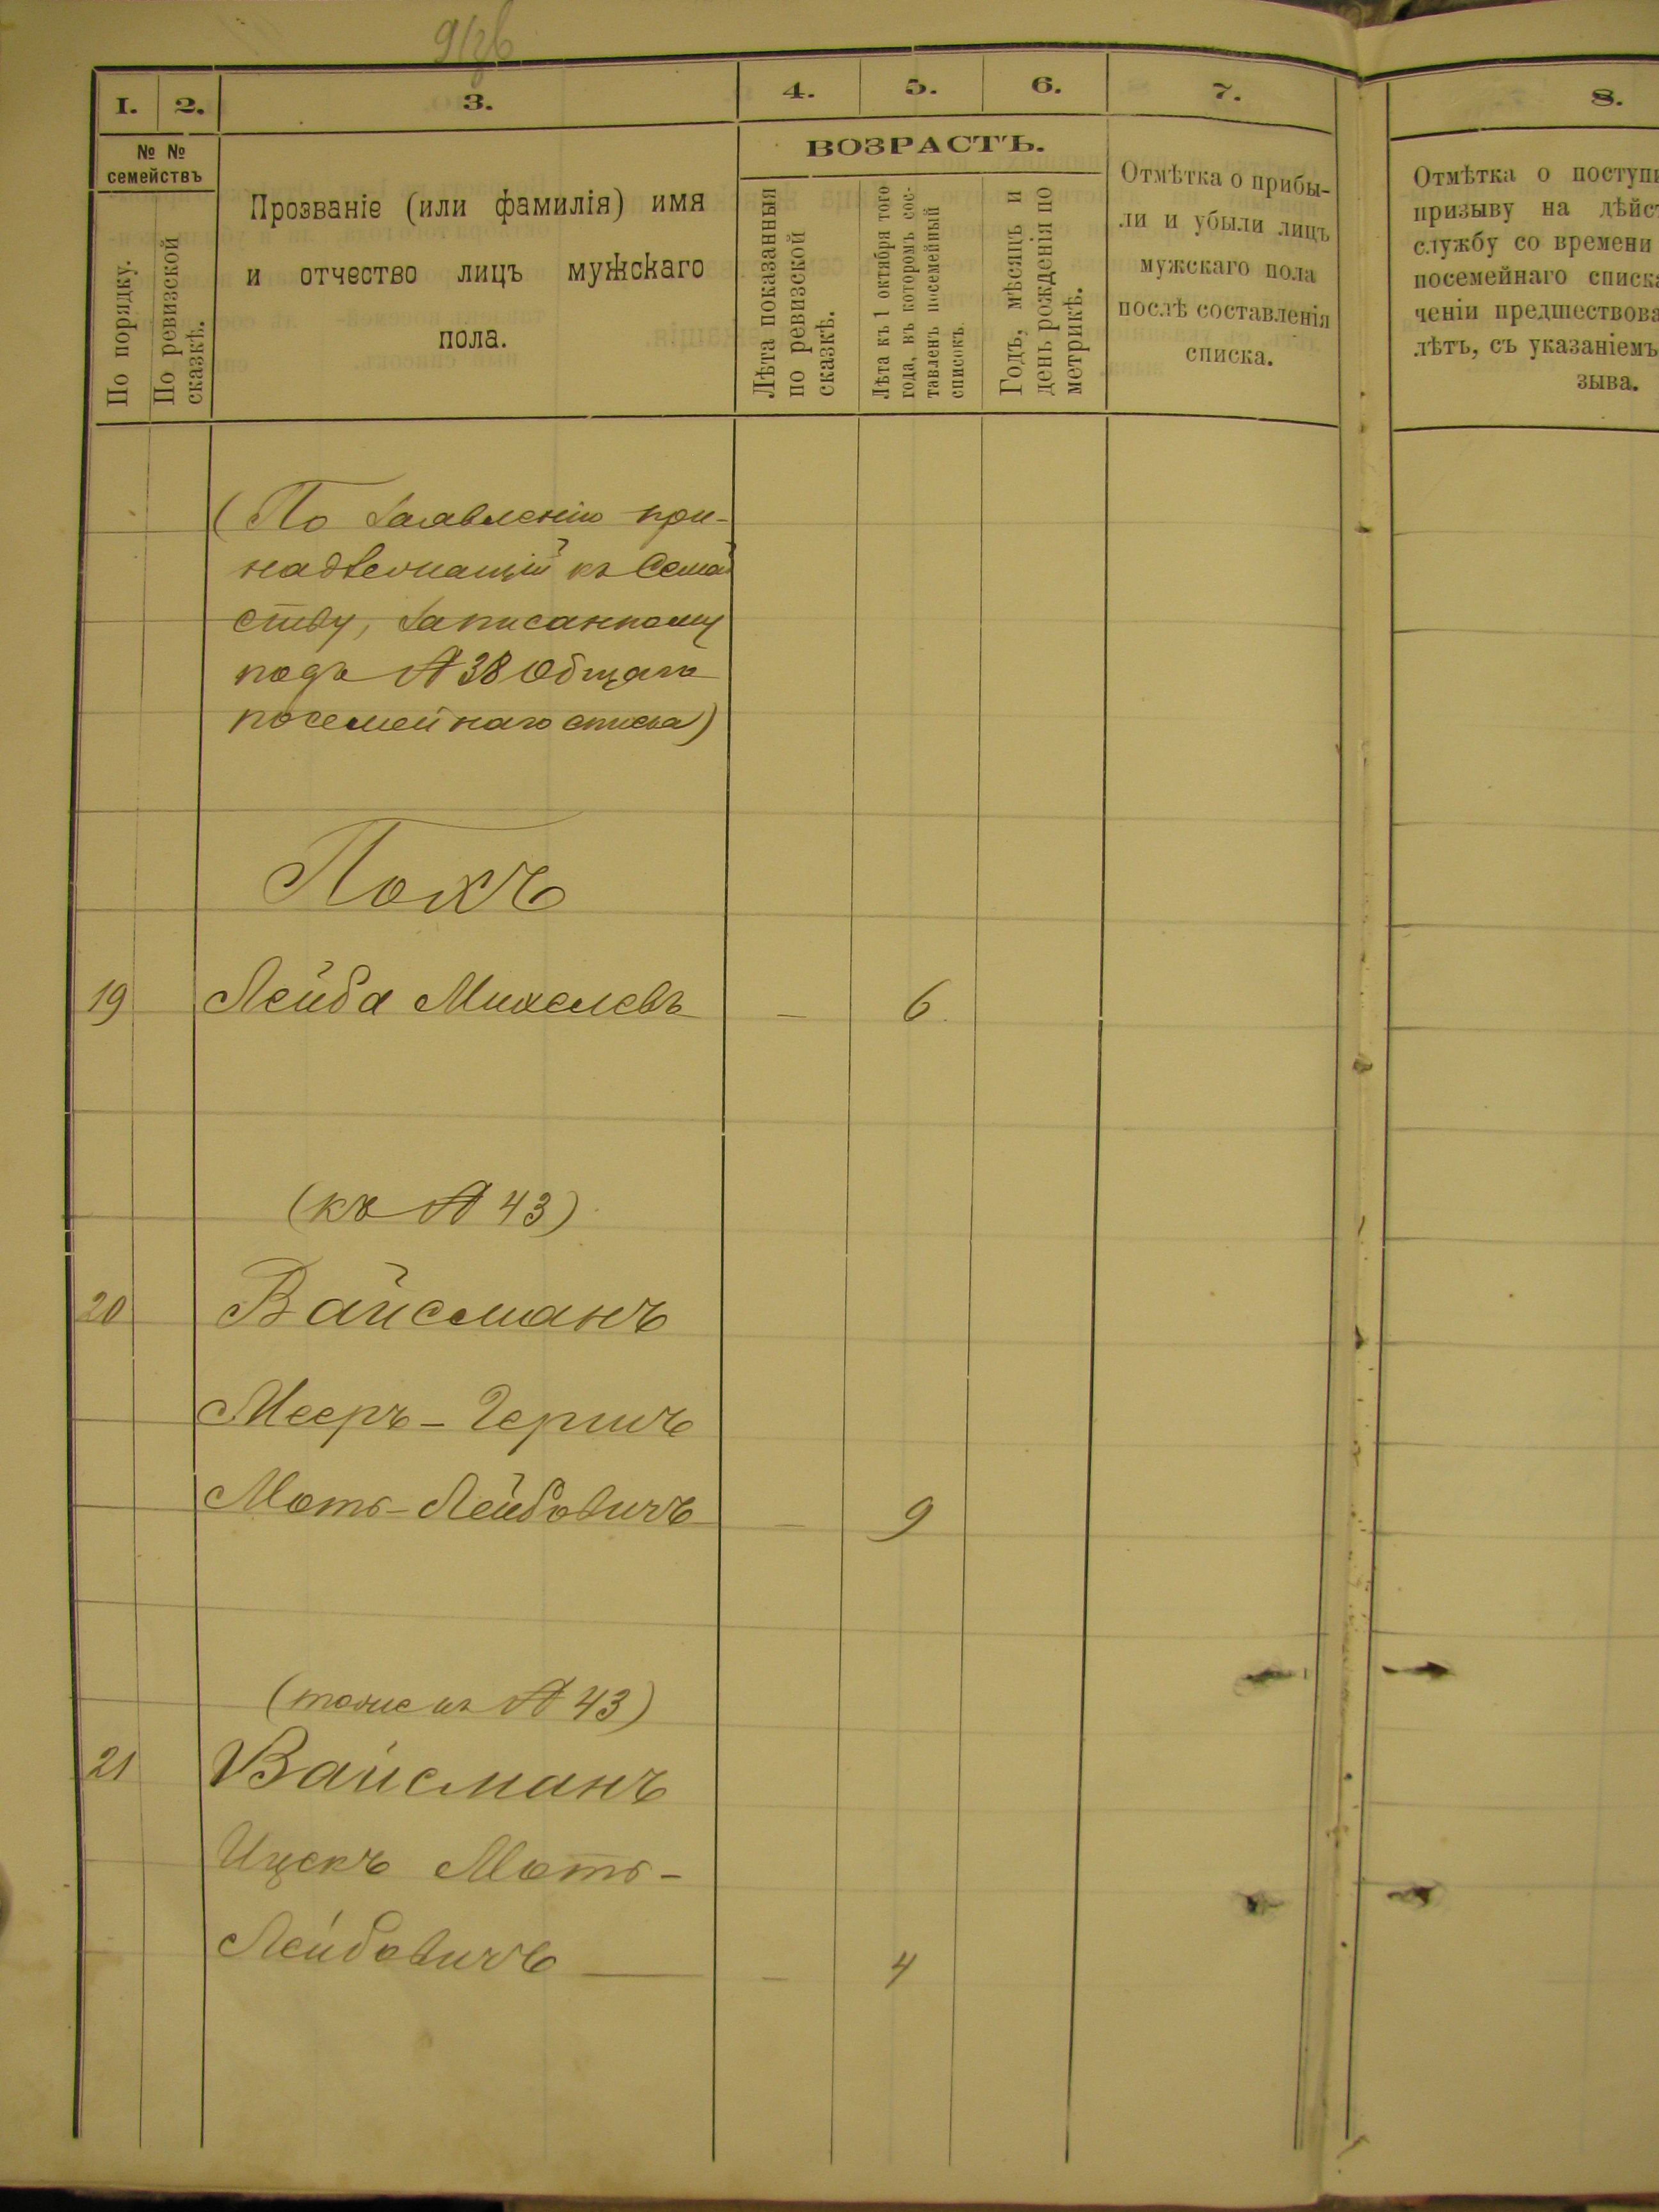 I.
2.
3.
4.
5.
6.
7.
8.
№ №
семействъ
По порядку.
По ревизской
сказкѣ.
Прозваніе (или фамилія) имя
и отчество лицъ мужскаго
пола.
ВОЗРАСТЪ.
Лѣта показанныя
по ревизской
сказкѣ.
Лѣта къ 1 октября того
года, въ которомъ сос-
тавленъ посемейный
списокъ.
Годъ, мѣсяцъ и
день рожденія по
метрикѣ.
Отмѣтка о прибы-
ли и убыли лицъ
мужскаго пола
послѣ составленія
списка.
Отмѣтка о поступи
призыву на дѣйст
службу со времени
посемейнаго списка
ченіи предшествова
лѣтъ, съ указаніемъ
зыва.
(По Заявленію при-
надлежащій къ Семей
ству, Записанному
подъ № 38 Общаго
посемейнаго списка)
Покъ
19 Лейба Михелевъ — 6
(къ № 43)
20 Вайсманъ
Мееръ - Гершъ
Моть - Лейбовичъ — 9
(тоже къ № 43)
21 Вайсманъ
Ицекъ Моть -
Лейбовичъ — — 4